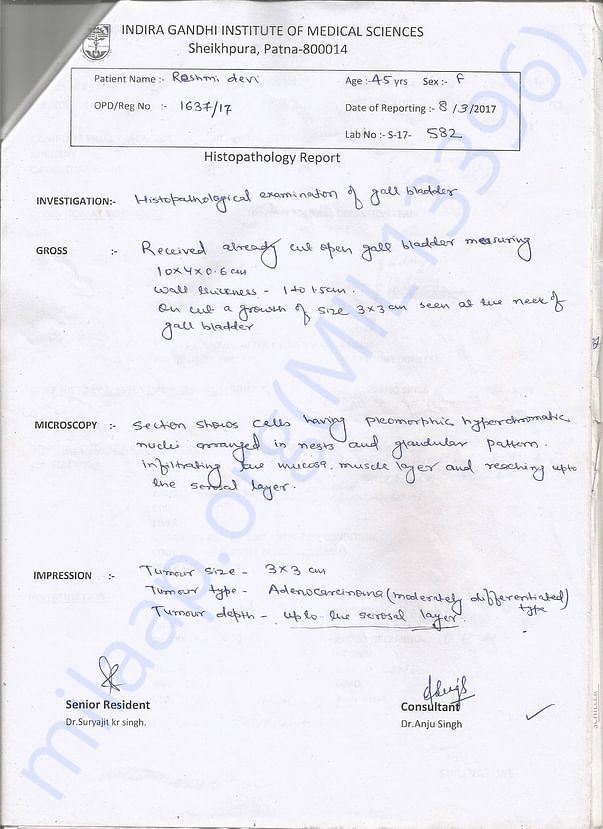 INDIRA GANDHI INSTITUTE OF MEDICAL SCIENCES
Sheikhpura, Patna-800014
Patient Name :- Rashmi devi Age :-45 yrs Sex :- F
OPD/Reg No :- 1637/17 Date of Reporting :- 8/3/2017
Lab No :- S-17- 582
Histopathology Report
INVESTIGATION:- Histopathological examination of gall bladder
GROSS :- Received already cut open gall bladder measuring
10x4x0.6 cm
Wall thickness - 1 to 1.5cm.
On cut a growth of size 3x3 cm seen at the neck of
gall bladder
MICROSCOPY :- Section shows cells having pleomorphic hyperchromatic
nuclei arranged in nests and glandular pattern.
infiltrating the mucosa, muscle layer and reaching upto
the serosal layer.
IMPRESSION :- Tumour size - 3x3 cm
Tumour type - Adenocarcinoma (moderately differentiated)
type
Tumour depth - upto the serosal layer.
Senior Resident Consultant
Dr.Suryajit kr singh. Dr.Anju Singh
milaap.org(MIL13396)